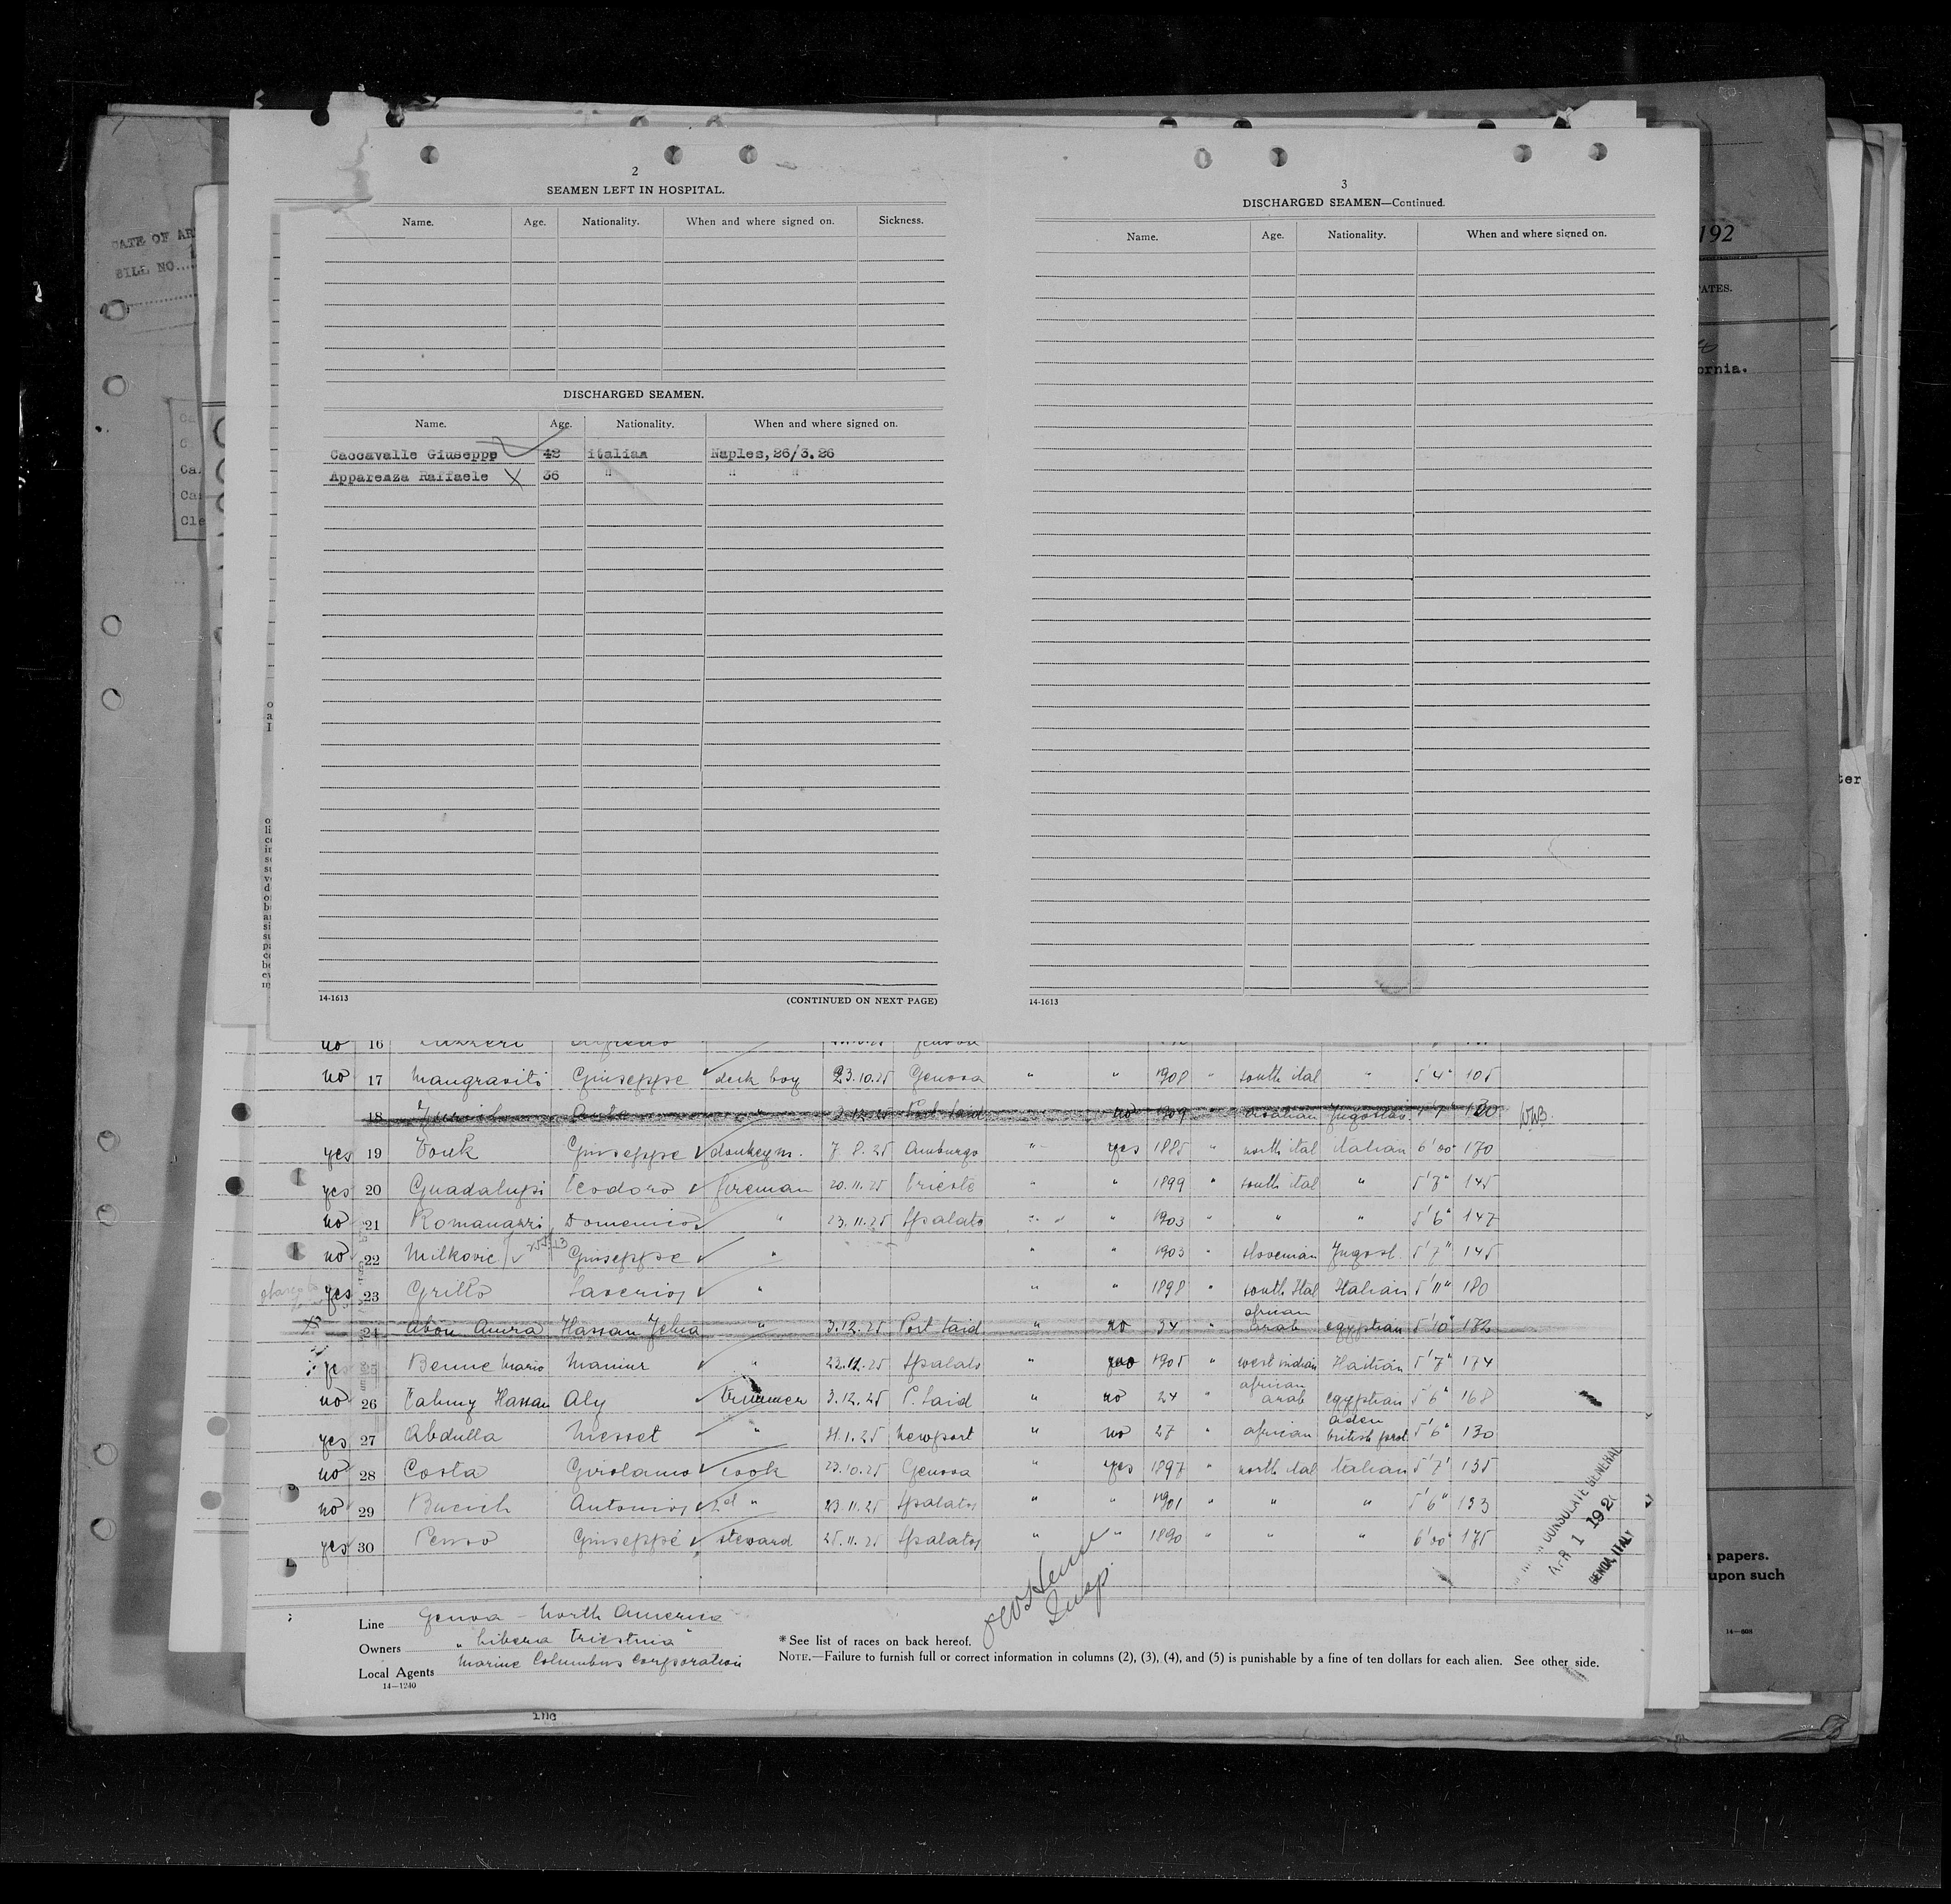 2
SEAMEN LEFT IN HOSPITAL.
Name. Age. Nationality. When and where signed on. Sickness.
DISCHARGED SEAMEN.
Name. Age. Nationality. When and where signed on.
Caccavalle Giuseppe 42 italian Naples, 26/3.26
Apparenza Raffaele X 36 " " "
14-1613 (CONTINUED ON NEXT PAGE)
3
DISCHARGED SEAMEN—Continued.
Name. Age. Nationality. When and where signed on.
14-1613
DATE OF AR
BILL NO....
Cle
192
ATES.
ornia.
ter
no 16
no 17 Mangraviti Giuseppe deck boy 23.10.25 Genova " " 1908 " south ital " 5'4" 105
18 3.12.25 Port Said no 1909 Jugoslav 5'7" 130
yes 19 Giuseppe donkeym. 7.8.25 Amburgo " yes 1885 " north ital italian 6'00" 170
yes 20 Guadalupi Teodoro fireman 20.11.25 Trieste " " 1899 " south ital " 5'3" 145
no 21 Romanazzi Domenico " 23.11.25 Spalato " " 1903 " " " 5'6" 147
no 22 Milkovic Giuseppe " " " 1903 " slovenian Jugosl. 5'7" 145
yes 23 Grillo Saverio " " " 1898 " south Ital Italian 5'11" 180
24 Abou Amra Hassan " 3.12.25 Port Said " no 34 " african arab egyptian 5'10" 172
25 Benne Mario " Spalato " 1905 " west indian Haitian 5'7" 174
no 26 Hassan Aly trimmer 3.12.25 P. Said " no 24 " african arab egyptian 5'6" 168
yes 27 Abdulla Messet " newport " no 27 " african aden british prot. 5'6" 130
no 28 Costa Girolamo cook 23.10.25 Genova " yes 1897 " north ital Italian 5'7" 135
no 29 Bucich Antonio 2d " 23.11.25 Spalato " " 1901 " " " 5'6" 133
yes 30 Penso Giuseppe steward 25.11.25 Spalato " " 1890 " " " 6'00" 175
CONSULATE GENERAL
APR 1 192
GENOA, ITALY
Line Genova - North America
Owners "Libera Triestina"
Local Agents Marine Columbus Corporation
14—1240
Insp
*See list of races on back hereof.
NOTE.—Failure to furnish full or correct information in columns (2), (3), (4), and (5) is punishable by a fine of ten dollars for each alien. See other side.
papers.
upon such
14—608